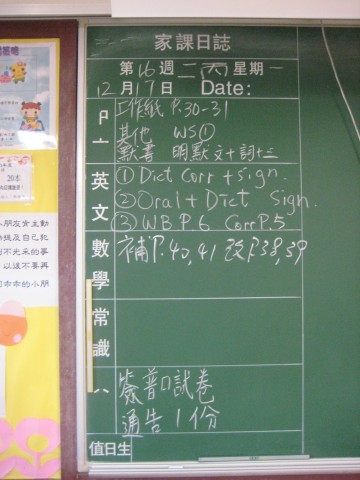 家課日誌
第16週 二(丙) 星期一
12月17日 Date:
工作紙 P.30-31
其他 WS①
默書 明默文+詞十三
英文
① Dict Corr + sign.
② Oral + Dict Sign.
③ WB P.6 Corr P.5
數學
補P.40,41 改P.38,39
常識
簽普口試卷
通告1份
值日生
20本
小朋友會主動
以誰不要再